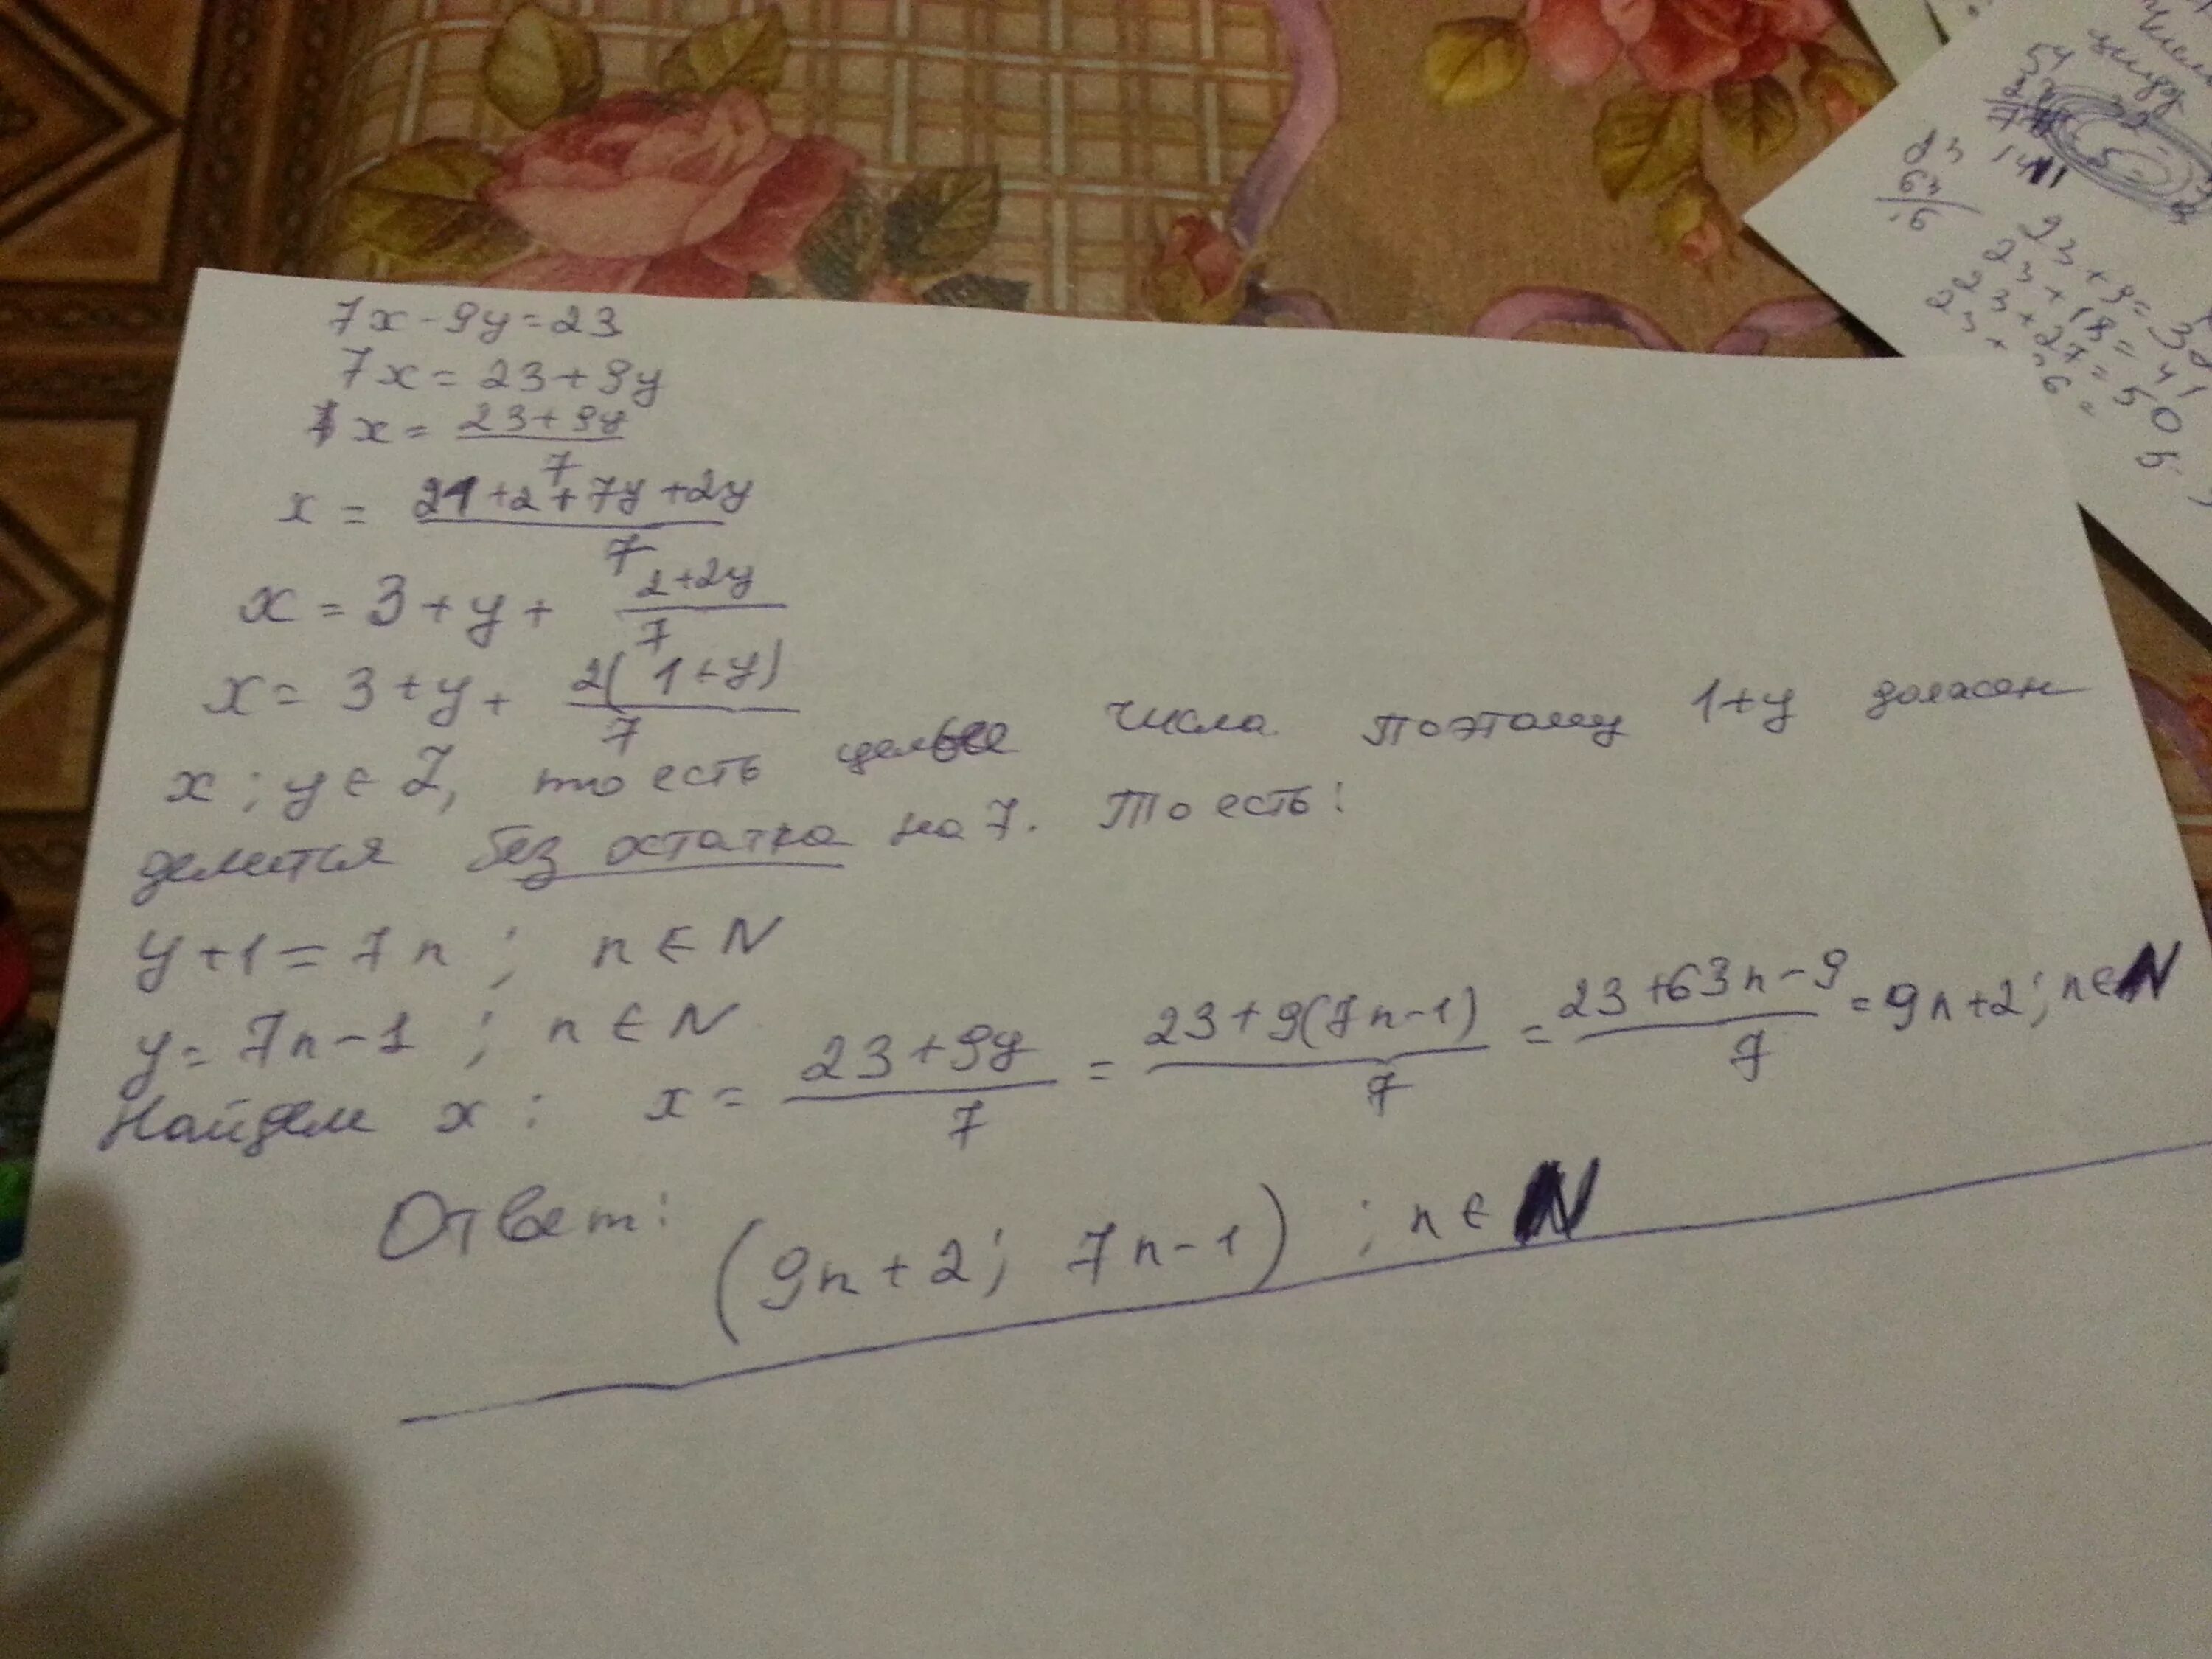 7x - 9y = 23
7x = 23 + 9y
x = (23 + 9y)/7
x = (21 + 2 + 7y + 2y)/7
x = 3 + y + (2 + 2y)/7
x = 3 + y + 2(1 + y)/7
x ; y ∈ Z, то есть целые числа. Поэтому 1+y должен
делится без остатка на 7. То есть:
y + 1 = 7n ; n ∈ N
y = 7n - 1 ; n ∈ N
Найдем x : x = (23 + 9y)/7 = (23 + 9(7n-1))/7 = (23 + 63n - 9)/7 = 9n + 2 ; n ∈ N
Ответ: (9n + 2 ; 7n - 1) ; n ∈ N
54
23
63
23 + 9 = 3
23 + 18 = 41
23 + 27 = 50